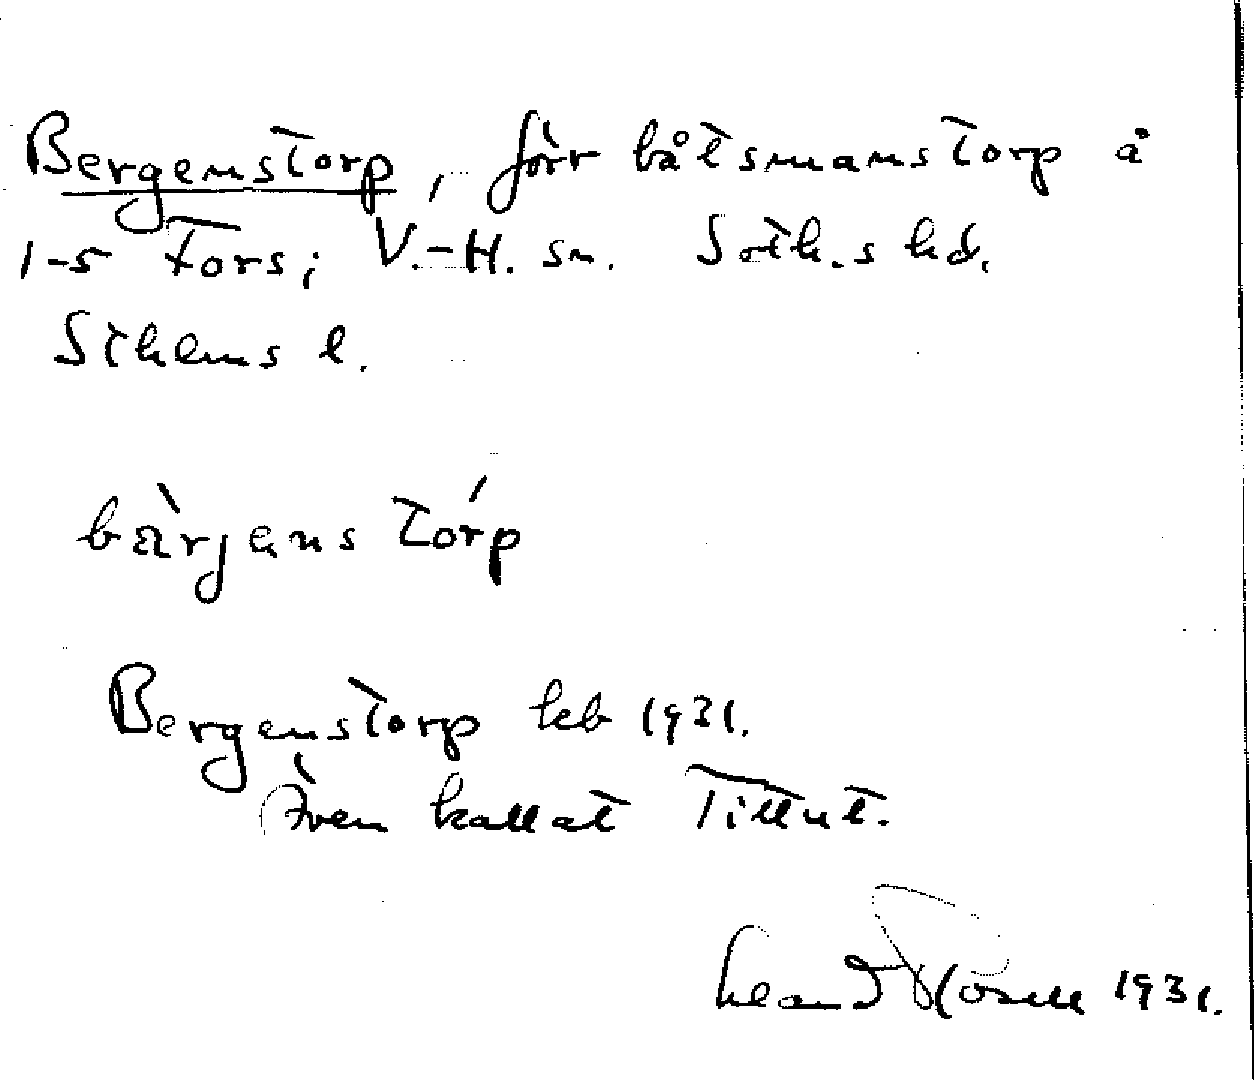 Bergenstorp, förr båtsmanstorp å
1-5 Fors; V.-H. sn. Soth.s hd.
Sthlms l.
bärjans torp
Bergenstorp leb 1931.
Även kallat Tillut.
1931.